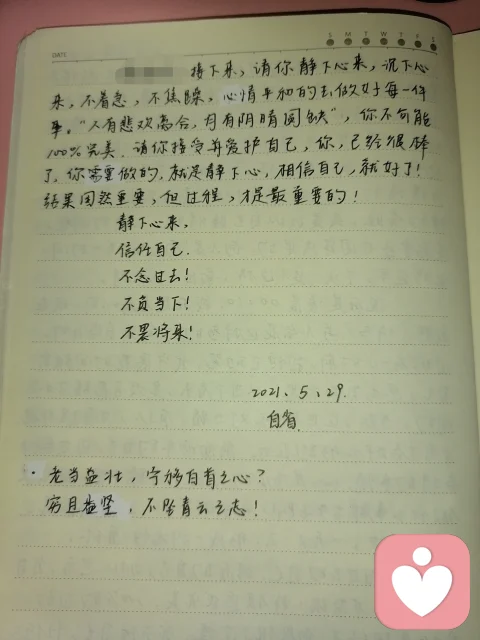 DATE
S M T W T F S
接下来，请你静下心来，沉下心
来，不着急，不焦躁，心情平和的去做好每一件
事。“人有悲欢离合，月有阴晴圆缺”，你不可能
100%完美，请你接受并爱护自己，你，已经很棒
了，你需要做的，就是静下心，相信自己，就好了！
结果固然重要，但过程，才是最重要的！
静下心来，
信任自己.
不念过去！
不负当下！
不畏将来！
2021、5、29.
自省.
· 老当益壮，宁移白首之心？
穷且益坚，不坠青云之志！